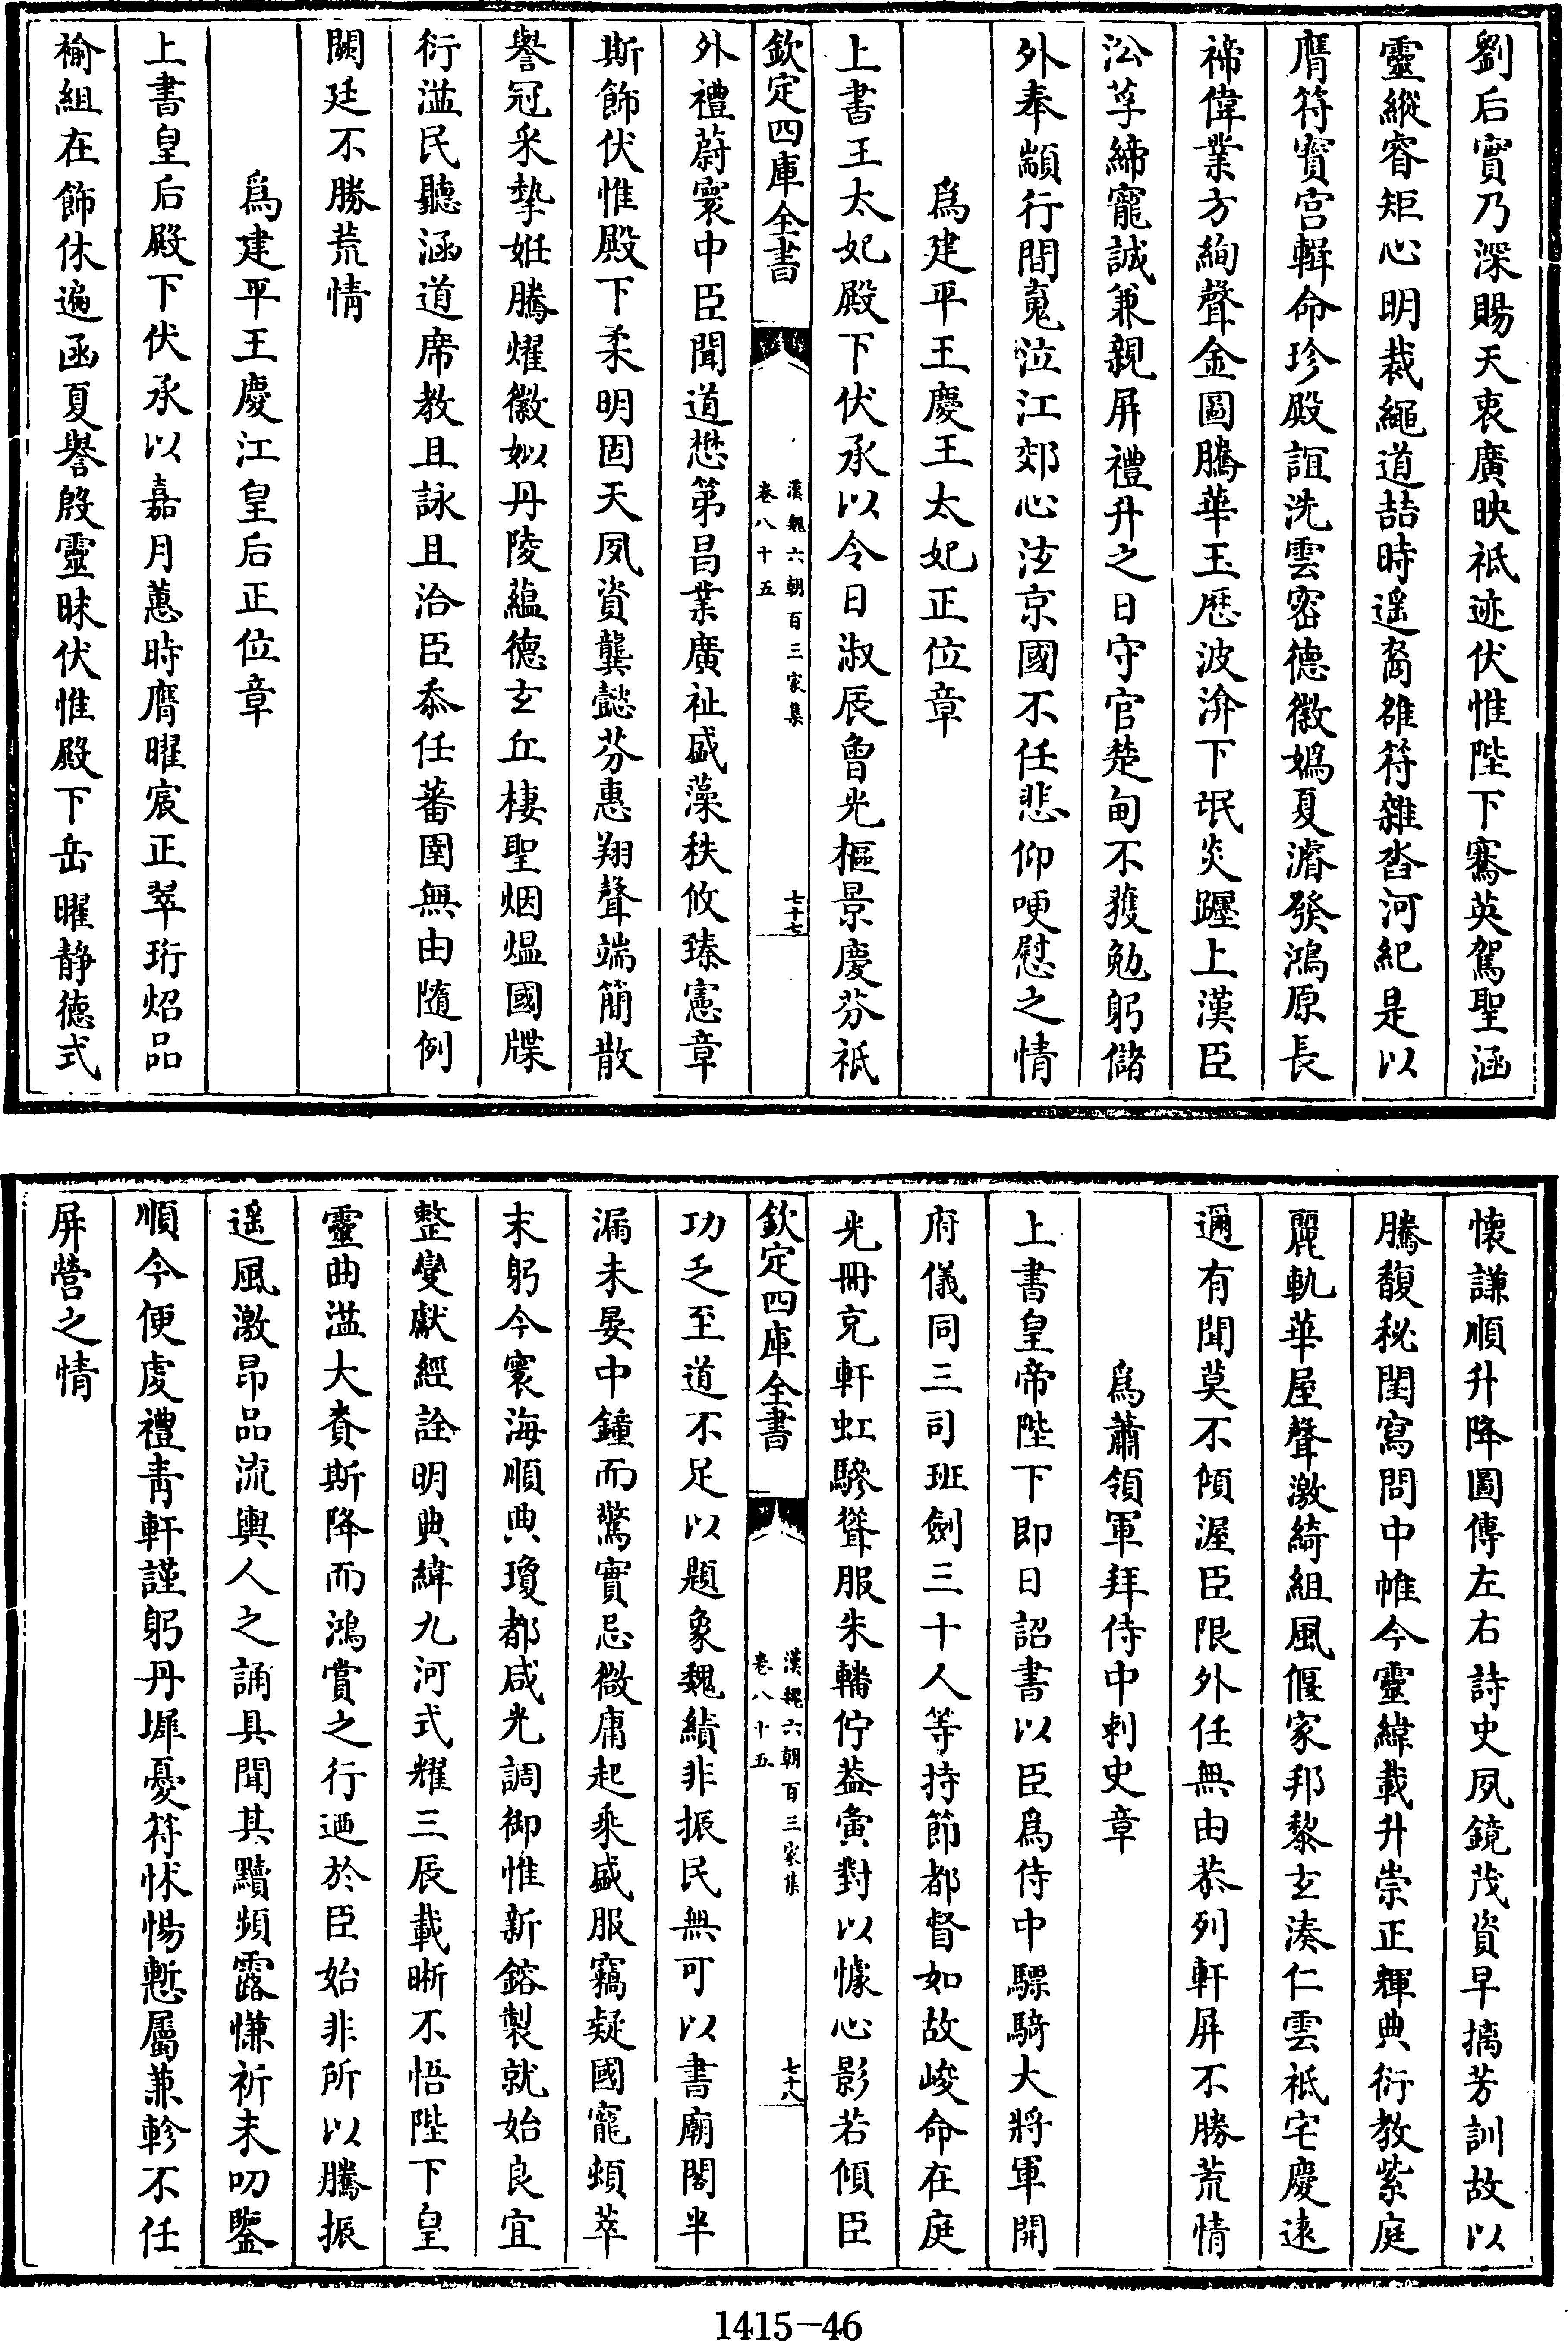 劉后實乃深賜天衷廣映祇迹伏惟陛下騫英駕聖涵
靈縱睿矩心明裁繩道喆時遥裔雒符雜沓河紀是以
膺符寳宫輯命珍殿誼洗雲密德徽嬀夏濬發鴻原長
禘偉業方絢聲金圖騰華玉歴波渰下氓炎躔上漢臣
㳂莩締寵誠兼親屏禮升之日守官楚甸不獲勉躬儲
外奉顓行間嵬泣江郊心泫京國不任悲仰哽慰之情
爲建平王慶王太妃正位章
上書王太妃殿下伏承以令日淑辰膺光樞景慶芬祇
欽定四庫全書
漢魏六朝百三家集
卷八十五
七十七
外禮蔚寰中臣聞道懋第昌業廣祉盛藻秩攸臻憲章
斯飾伏惟殿下柔明固天夙資龔懿芬惠翔聲端簡散
譽冠釆摯姙騰燿徽姒丹陵藴德玄丘棲聖烟煴國牒
衍溢民聽涵道席教且詠且洽臣忝任蕃圉無由隨例
闕廷不勝荒情
爲建平王慶江皇后正位章
上書皇后殿下伏承以嘉月蕙時膺曜宸正翠珩炤品
榆組在飾休遍函夏譽殷靈昧伏惟殿下岳曜静德式
懷謙順升降圖傳左右詩史夙鏡茂資早摛芳訓故以
騰馥秘閨寫問中帷今靈緯載升崇正輝典衍教紫庭
麗軌華屋聲激綺組風偃家邦黎玄湊仁雲祇宅慶逺
邇有聞莫不傾渥臣限外任無由恭列軒屏不勝荒情
爲蕭領軍拜侍中刺史章
上書皇帝陛下即日詔書以臣爲侍中驃騎大將軍開
府儀同三司班劍三十人等持節都督如故峻命在庭
光冊克軒虹驂聳服朱轓佇葢寅對以懅心影若傾臣
欽定四庫全書
漢魏六朝百三家集
卷八十五
七十八
功乏至道不足以題象魏績非振民無可以書廟閣半
漏未晏中鐘而驚實忌微庸起乘盛服竊疑國寵頻萃
末躬今寰海順典瓊都咸光調御惟新鎔製就始良宜
整變獻經詮明典緯九河式耀三辰載晰不悟陛下皇
靈曲溢大賚斯降而鴻賞之行迺於臣始非所以騰振
遥風激昂品流輿人之誦具聞其黷頻露慊祈未叨鑒
順今便虔禮青軒謹躬丹墀憂符怵惕慙屬兼軫不任
屏營之情
1415-46